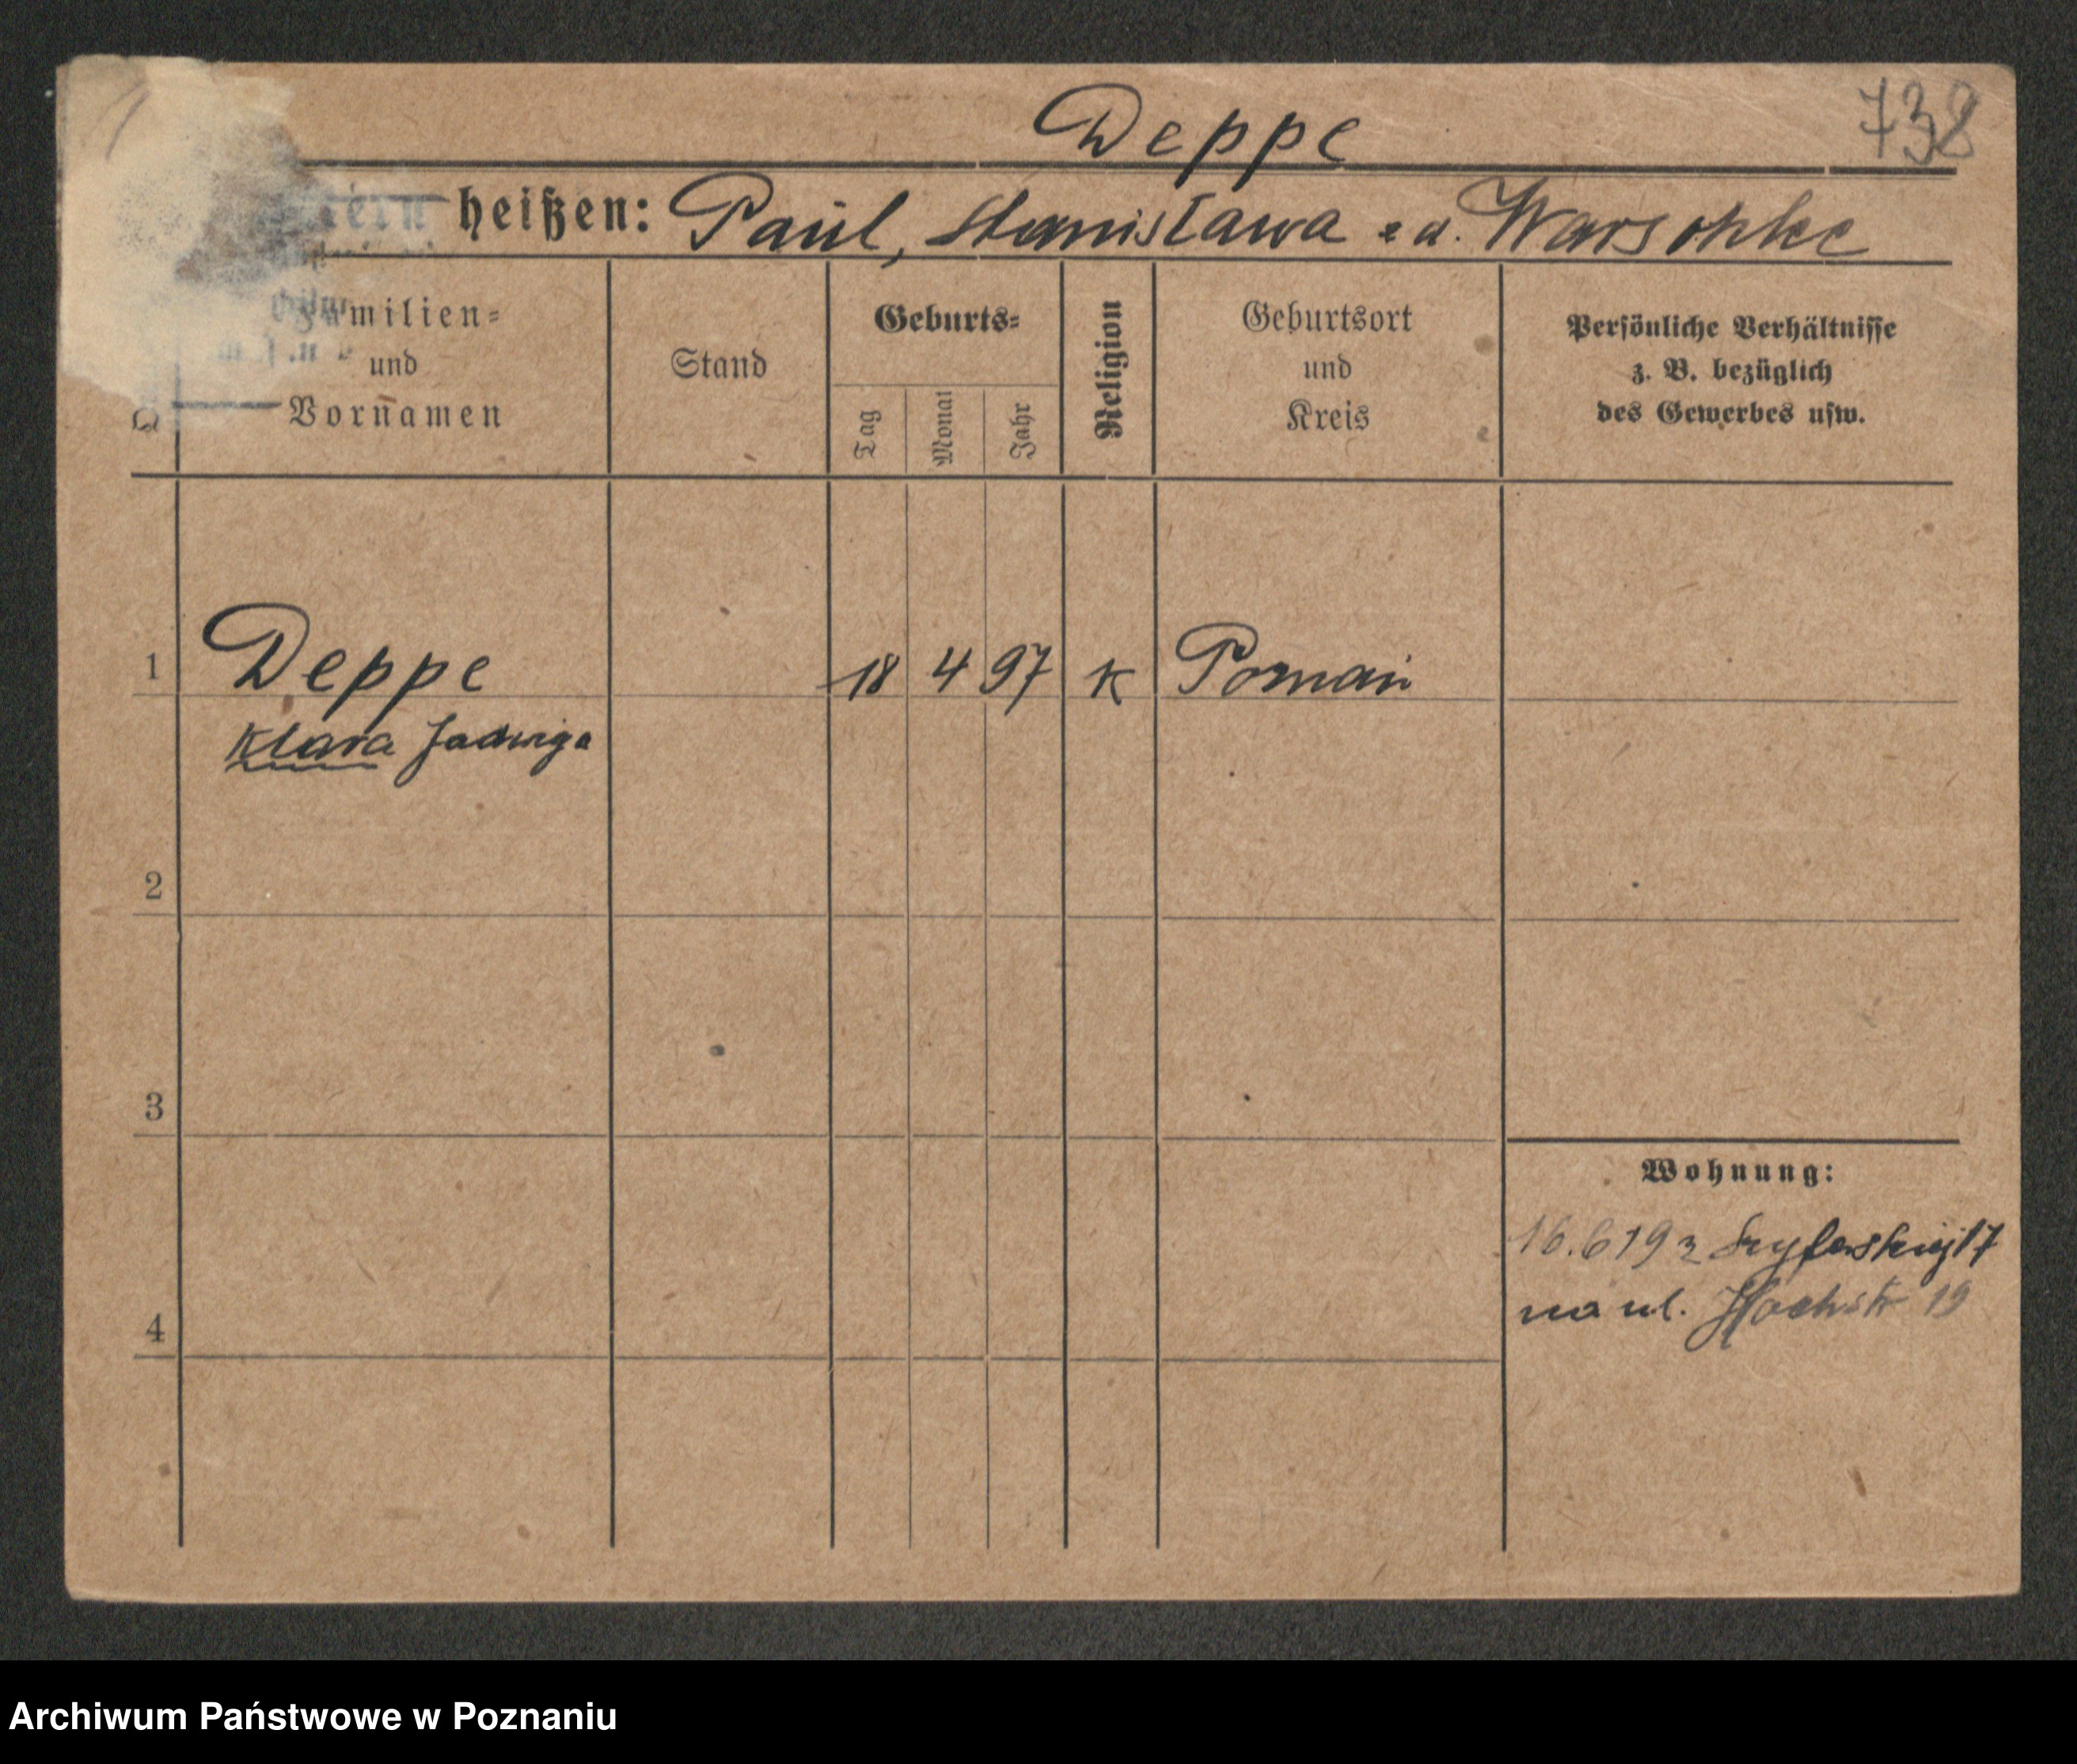 Deppe
738
heißen: Paul, Stanisława z d. Warschke
Familien=
und
Vornamen
Stand
Geburts=
Tag
Monat
Jahr
Religion
Geburtsort
und
Kreis
Persönliche Verhältnisse
z. B. bezüglich
des Gewerbes usw.
1 Deppe 18 4 97 K Poznań
Klara Jadwiga
2
3
Wohnung:
16.6 19 z 17
na ul. Hochstr 19
4
Archiwum Państwowe w Poznaniu